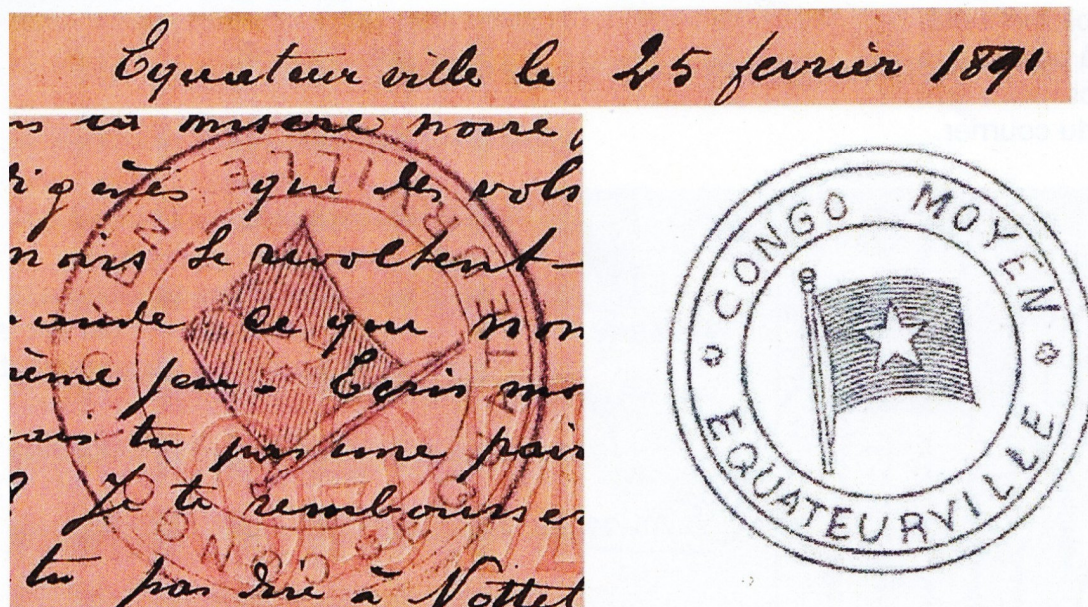 Equateurville le 25 fevrier 1891
misère noire
que les vols
noirs se revoltent
ce que non
même jeu - Ecris mo
tu pas une pair
Je te rembourser
tu pas dire à Nottet
CONGO MOYEN
EQUATEURVILLE
CONGO MOYEN
EQUATEURVILLE